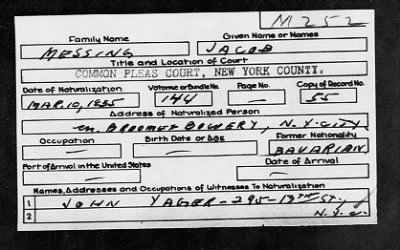 N 252
Family Name Given Name or Names
MESSING JACOB
Title and Location of Court
COMMON PLEAS COURT, NEW YORK COUNTY.
Date of Naturalization Volume or Bundle No. Page No. Copy of Record No.
MAR. 10, 1855 144 55
Address of Naturalized Person
BROOME & BOWERY, N.Y. CITY
Occupation Birth Date or Age Former Nationality
BAVARIAN
Port of Arrival in the United States Date of Arrival
Names, Addresses and Occupations of Witnesses To Naturalization
1 JOHN YAGER - 295 - 19TH ST.,
2 N.Y.C.